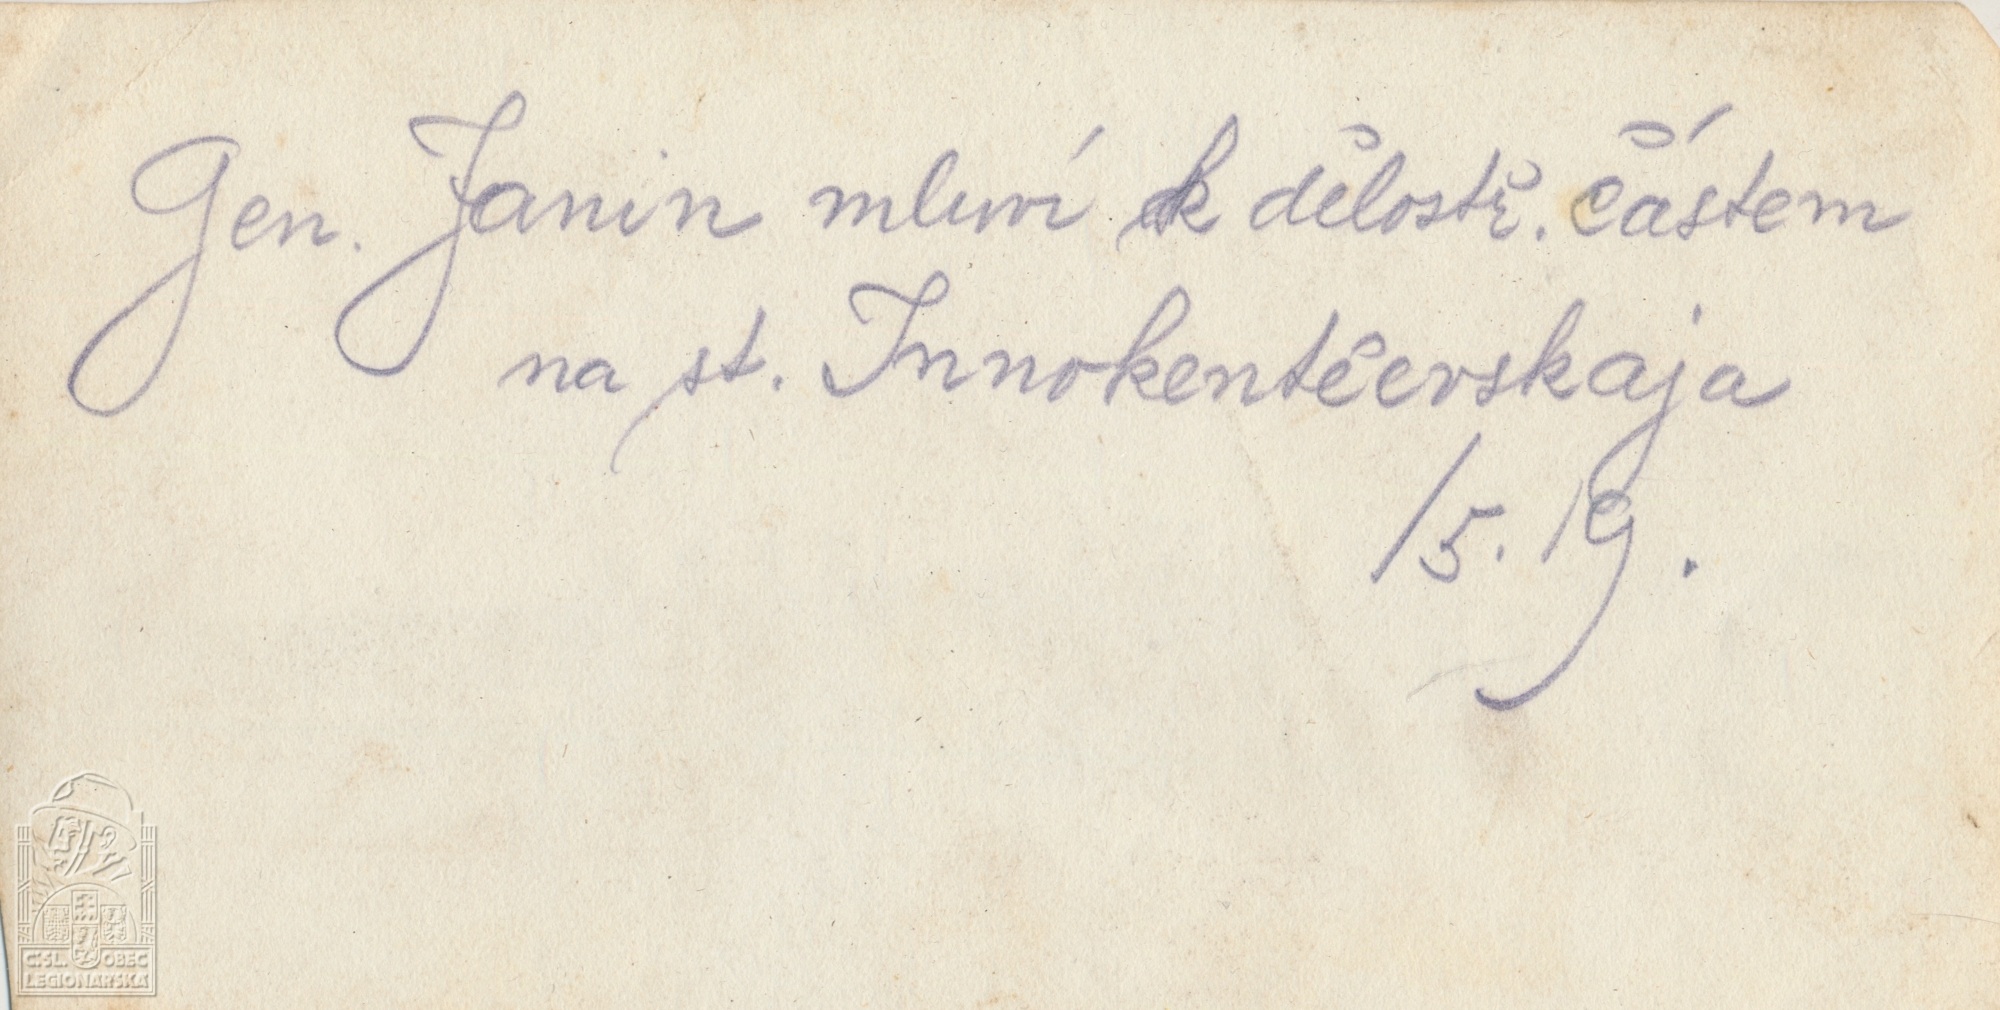 Gen. Janin mluví k dělostř. částem
na st. Innokentěevskaja
15. 19.
ČSL. OBEC
LEGIONÁŘSKÁ